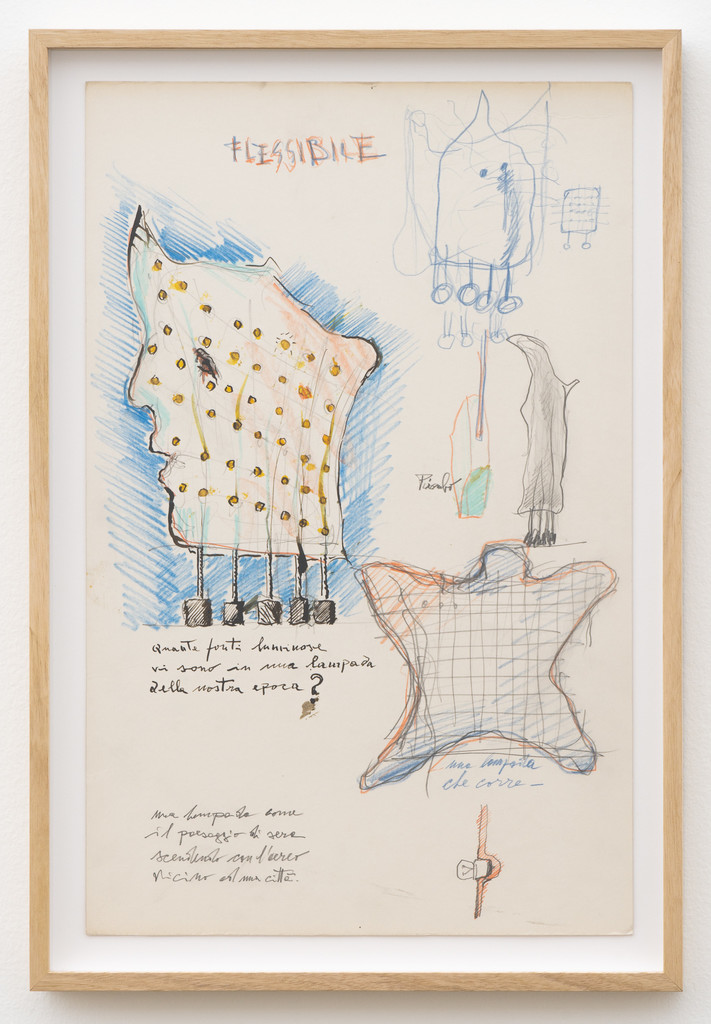 FLESSIBILE
Piombo
quante fonti luminose
vi sono in una lampada
della nostra epoca?
una lampada
che corre_
una lampada come
il paesaggio di sera
scendendo con l'aereo
vicino ad una città.